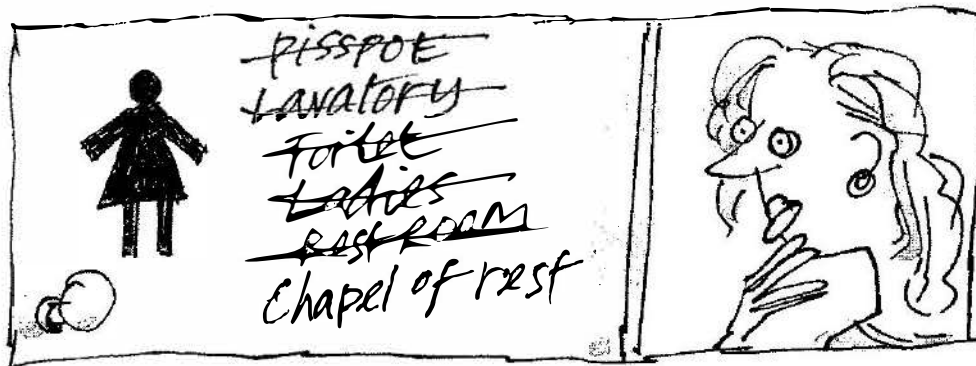 Pisspot
Lavatory
Toilet
Ladies
Rest Room
Chapel of rest